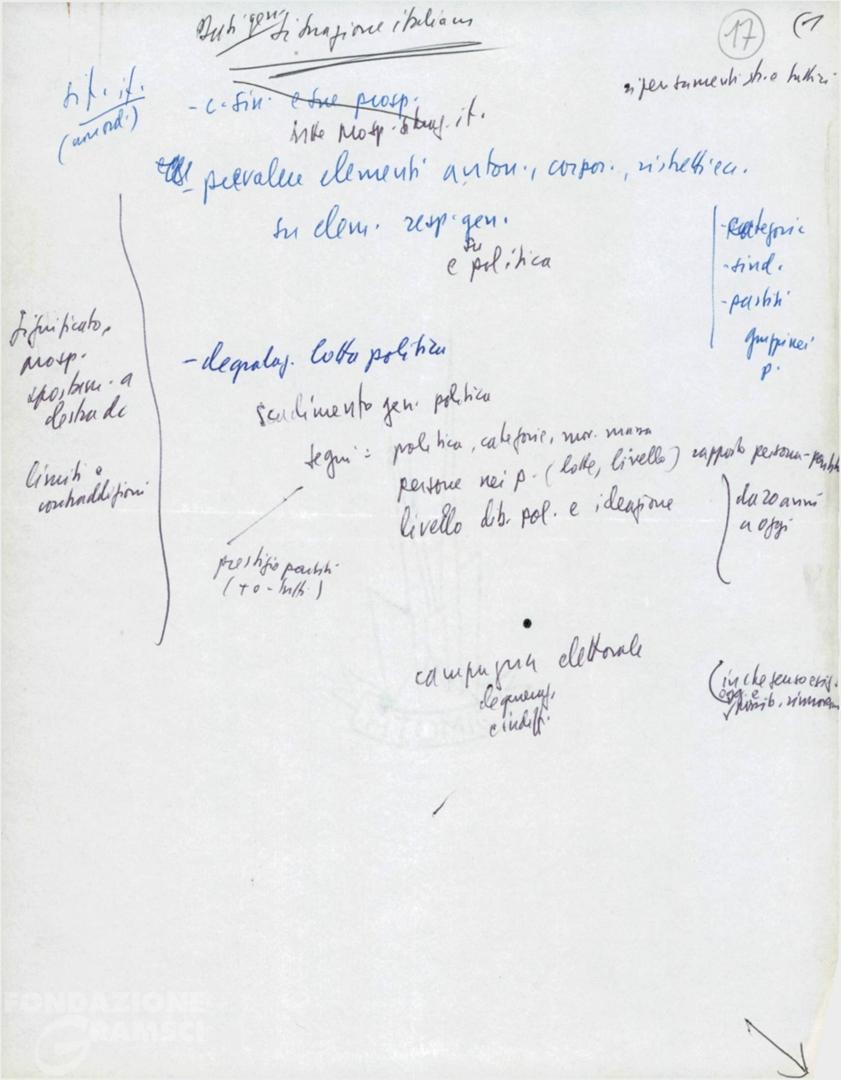 gen.
Situazione italiana
17
sit. it.
- c. sin. e sue prosp.
sulle prosp. situaz. it.
prevalere elementi auton., corpor., ristrettezza.
su elem. resp. gen.
su
e politica
- categorie
- sind.
- partiti
gruppi nei
p.
Significato,
prosp.
spostam. a
destra dc
limiti e
contraddizioni
- degradaz. lotta politica
Scadimento gen. politica
segni = politica, categorie, mov. massa
persone nei p. (lotte, livello) rapporto persona-partito
livello dib. pol. e ideazione
da 20 anni
a oggi
prestigio partiti
(+ o - tutti)
campagna elettorale
degeneraz.
e indiff.
(in che senso
oggi è
possib.
FONDAZIONE
GRAMSCI